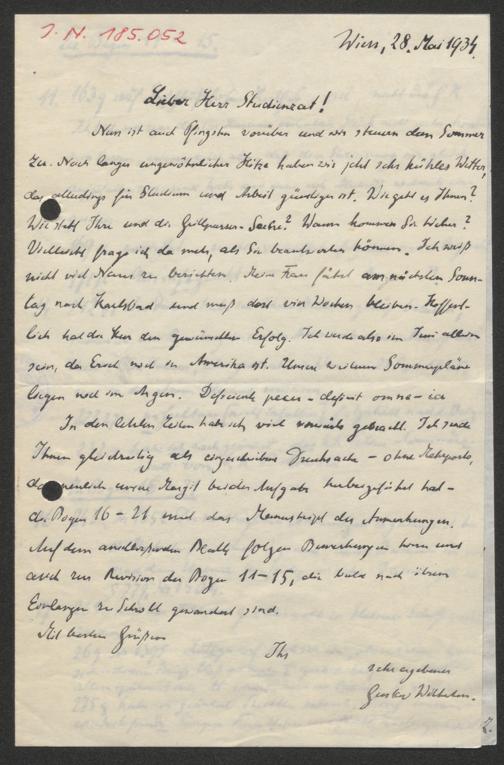 I. N. 185.052
Wien, 28. Mai 1934.
Lieber Herr Studienrat!
Nun ist auch Pfingsten vorüber und wir steuern dem Sommer
zu. Nach langer ungewöhnlicher Hitze haben wir jetzt sehr kühles Wetter,
das allerdings für Studium und Arbeit günstiger ist. Wie geht es Ihnen?
Wie steht Ihre und die Grillparzer-Sache? Wann kommen Sie hieher?
Vielleicht frage ich da mehr, als Sie beantworten können. Ich weiß
nicht viel Neues zu berichten. Meine Frau fährt am nächsten Sonn-
tag nach Karlsbad und muß dort vier Wochen bleiben. Hoffent-
lich hat die Kur den gewünschten Erfolg. Ich werde also im Juni allein
sein, da Erich noch in Amerika ist. Unsere weiteren Sommerpläne
liegen noch im Argen. Deficiente pecu- deficit omne - ia
In den letzten Zeiten habe ich viel vorwärts gebracht. Ich sende
Ihnen gleichzeitig als eingeschriebene Drucksache - ohne Rekepisse,
da neulich unsere bei der Aufgabe herbeigeführt hat -
die Bogen 16-21 und das Manuskript der Anmerkungen.
Auf dem anschließenden Blatt folgen Bemerkungen hierzu und
auch zur Revision der Bogen 11-15, die bald nach ihrem
Einlangen zu Scholl gewandert sind.
Mit besten Grüßen
Ihr
sehr ergebener
Gustav Wilhelm.
2.